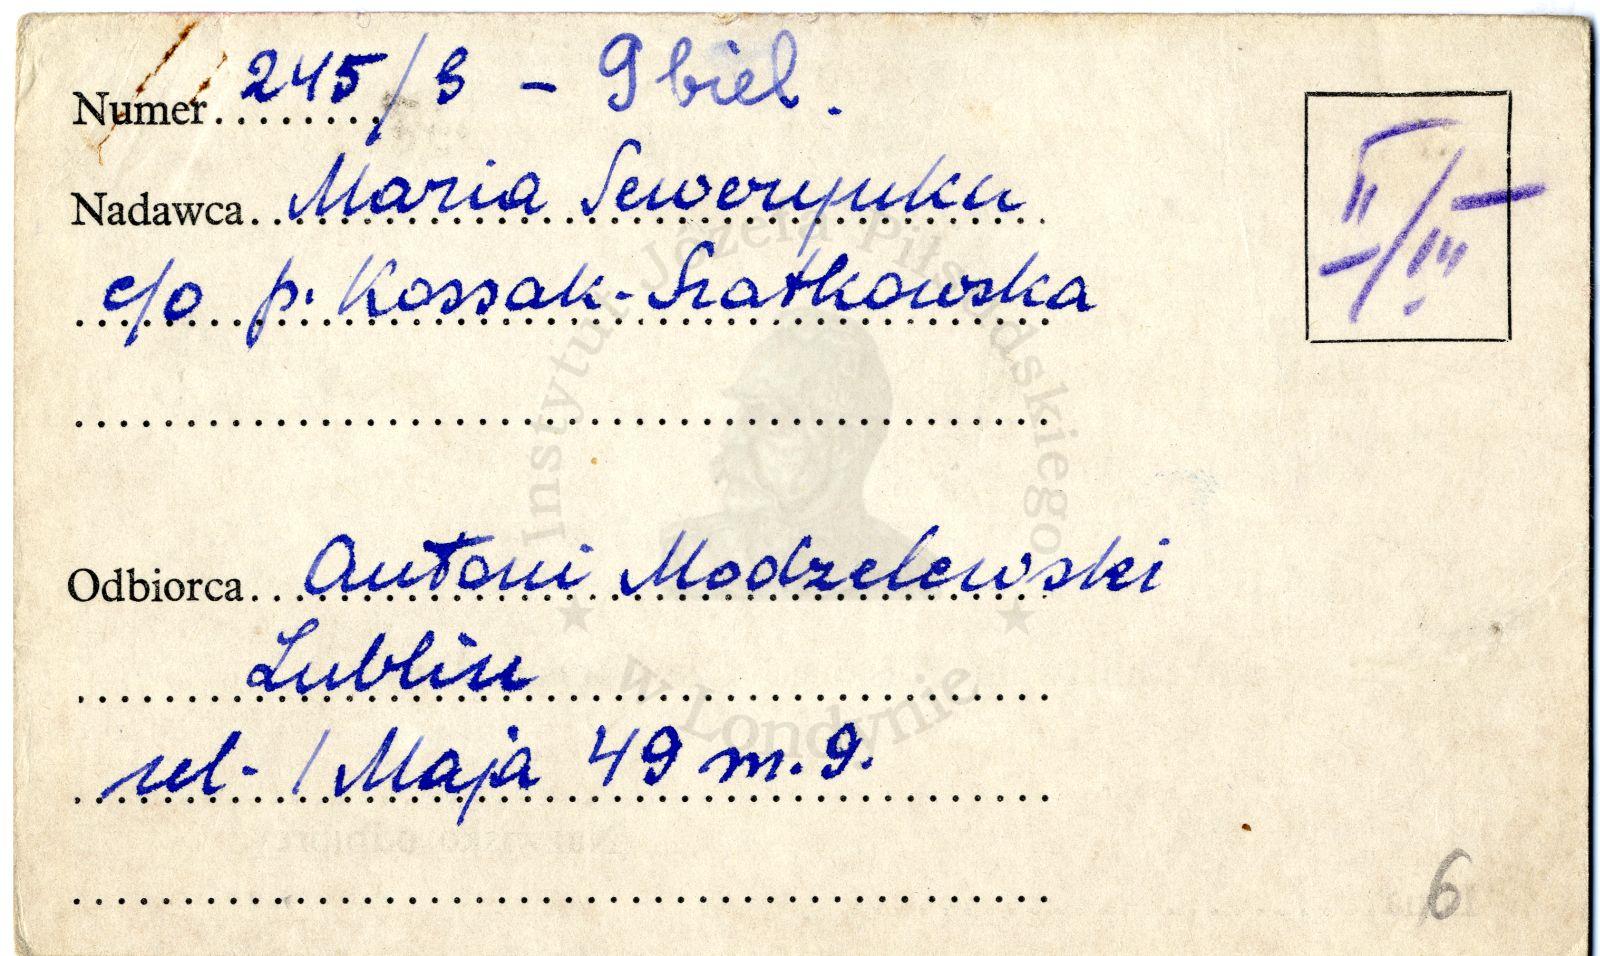 Numer 245/3 - 9 biel.
Nadawca Maria Sewerynka
c/o p. Kossak-Szatkowska
Odbiorca Antoni Modzelewski
Lublin
ul. 1 Maja 49 m. 9.
II/III
6
Instytut Józefa Piłsudskiego
w Londynie